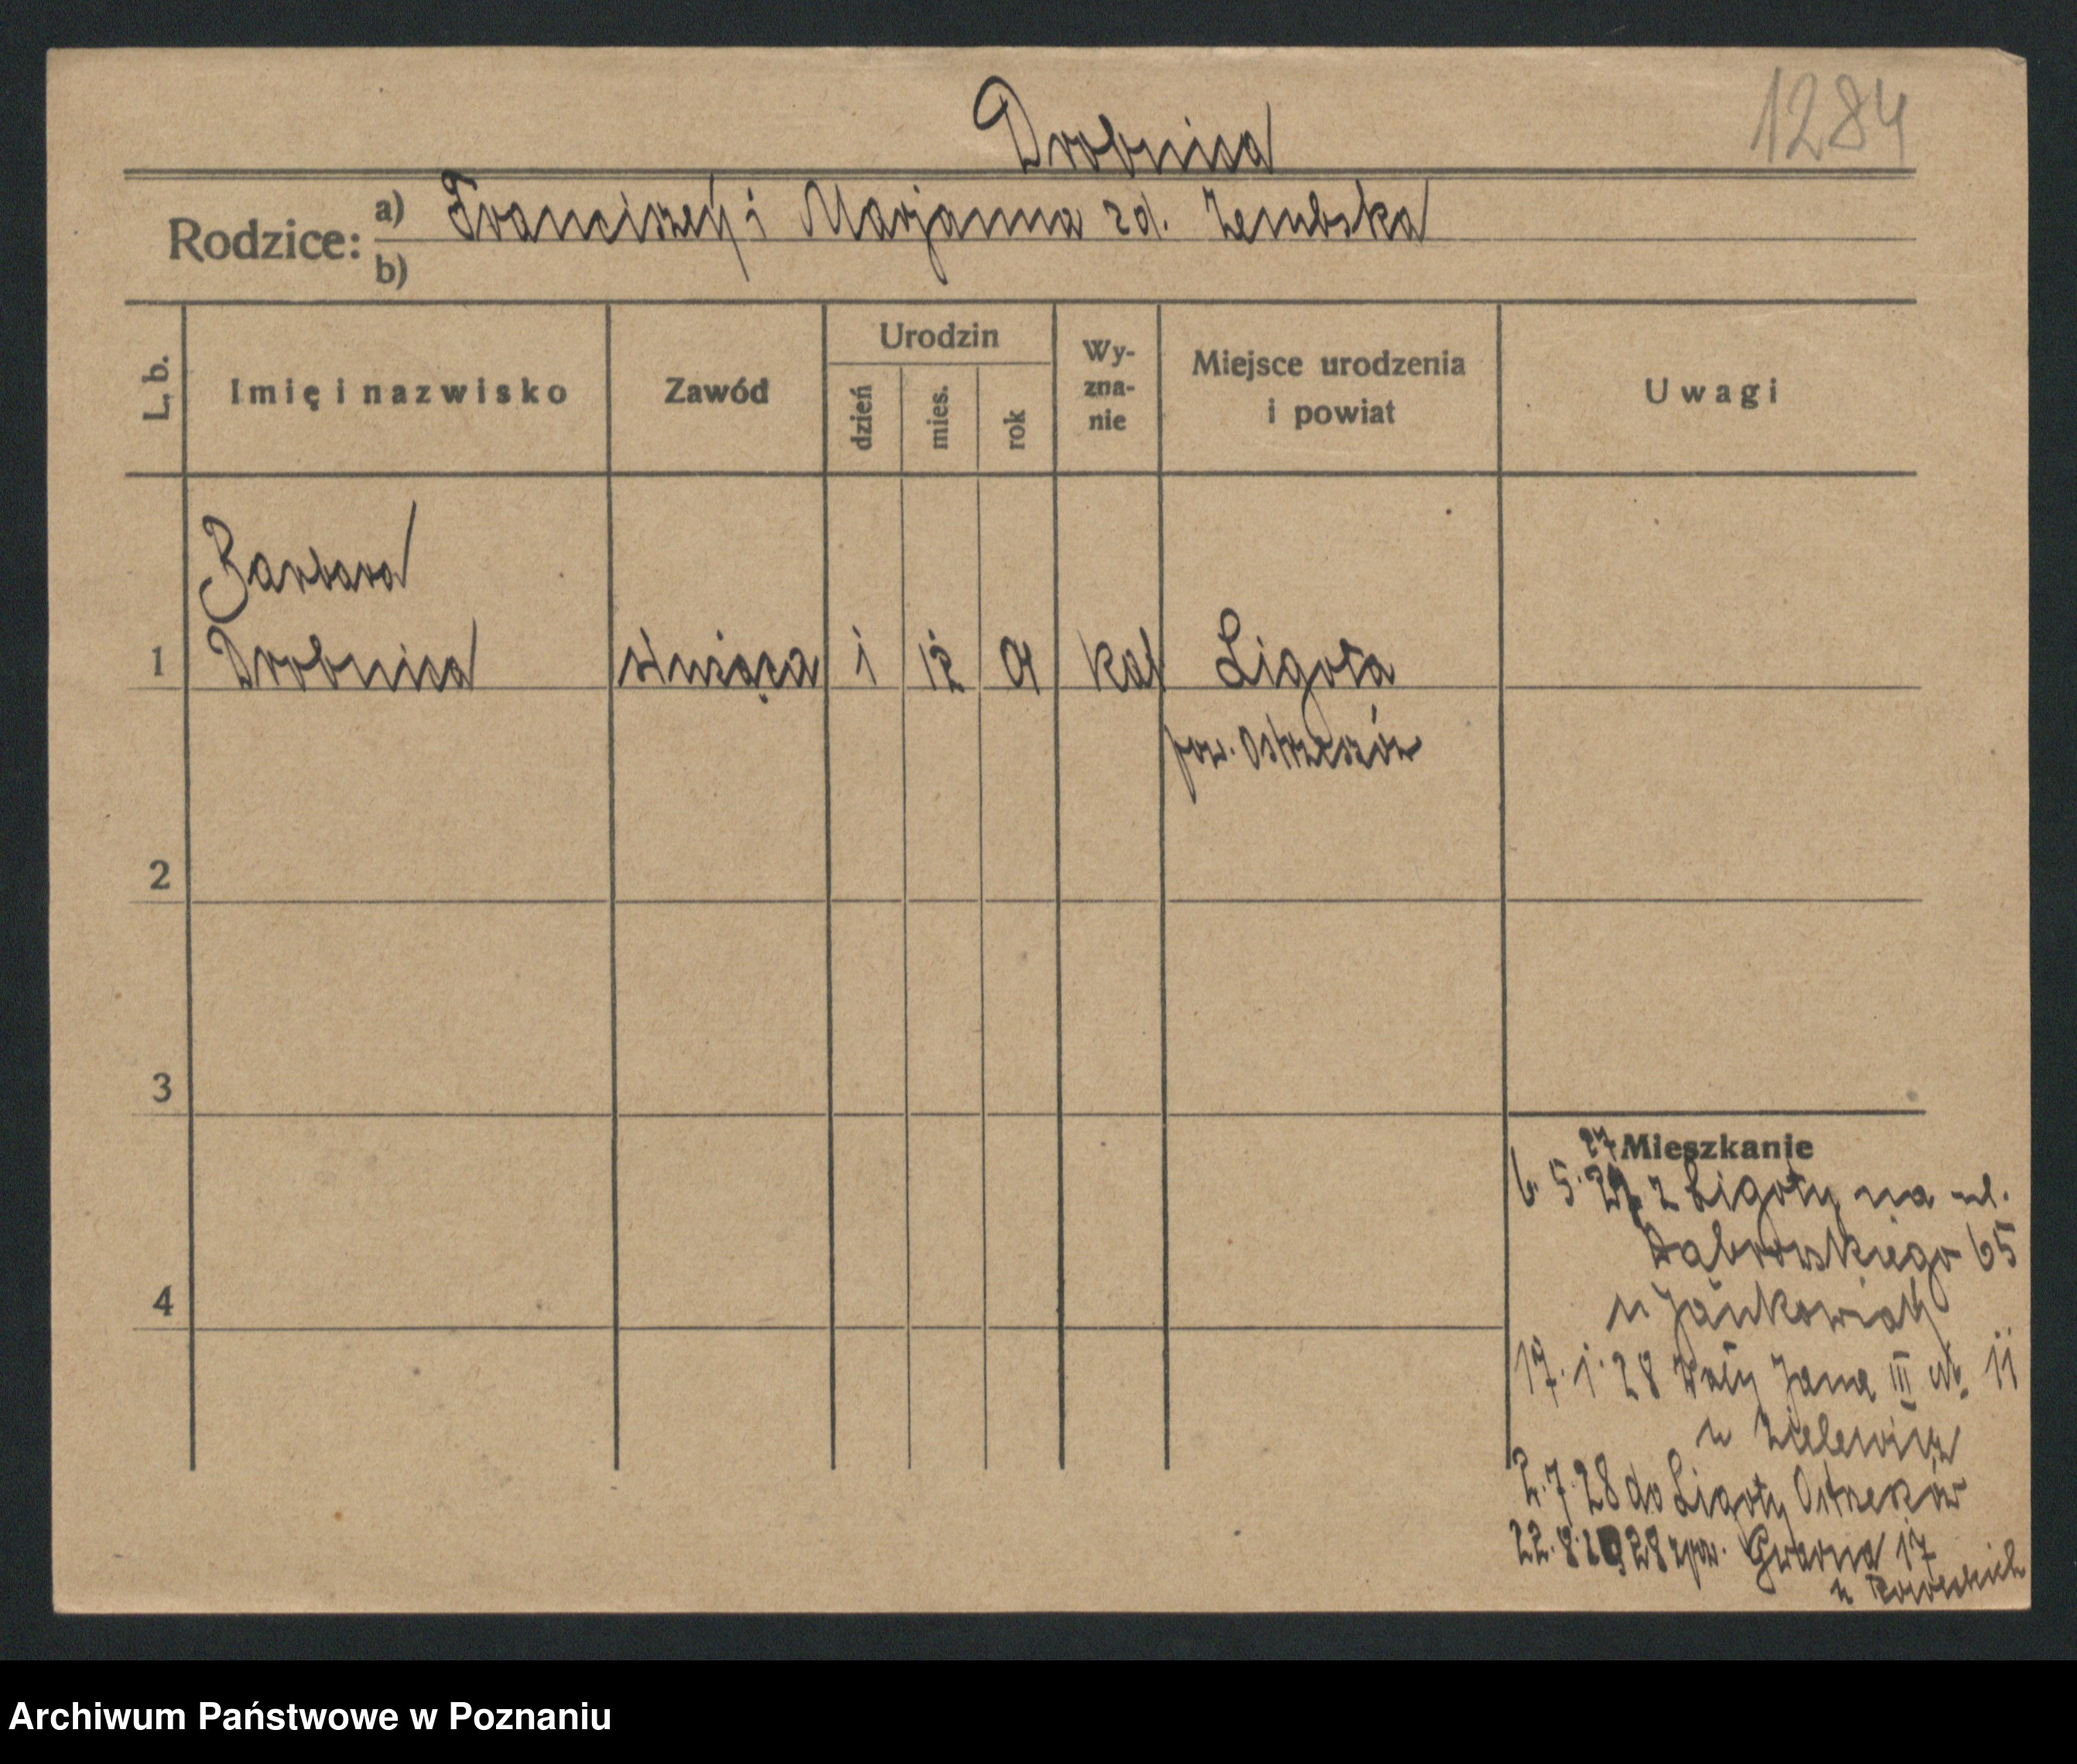 Drobnica
1284
Rodzice:
a) Franciszek i Marjanna zd. Zembska
b)
L. b.
Imię i nazwisko
Zawód
Urodzin
dzień
mies.
rok
Wy-
zna-
nie
Miejsce urodzenia
i powiat
Uwagi
Barbara
1 Drobnica służąca 1 12 01 kat Ligota
pow. Ostrzeszów
2
3
4
Mieszkanie
27
6. 5. z Ligoty na ul.
Dąbrowskiego 65
u Jankowiak
17. 1. 28 Wały Jana III nr. 11
u Zielewicz
2. 7. 28 do Ligoty Ostrzeszów
22. 8. 1928 zpow. Gwarna 17
u
Archiwum Państwowe w Poznaniu